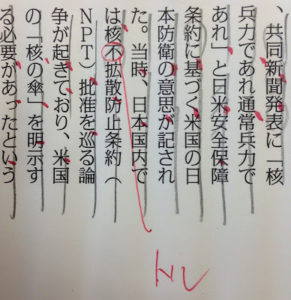 、共同新聞発表に「核
兵力であれ通常兵力で
あれ」と日米安全保障
条約に基づく米国の日
本防衛の意思が記され
た。当時、日本国内で
は核不拡散防止条約（
ＮＰＴ）批准を巡る論
争が起きており、米国
の「核の傘」を明示す
る必要があったという
トル